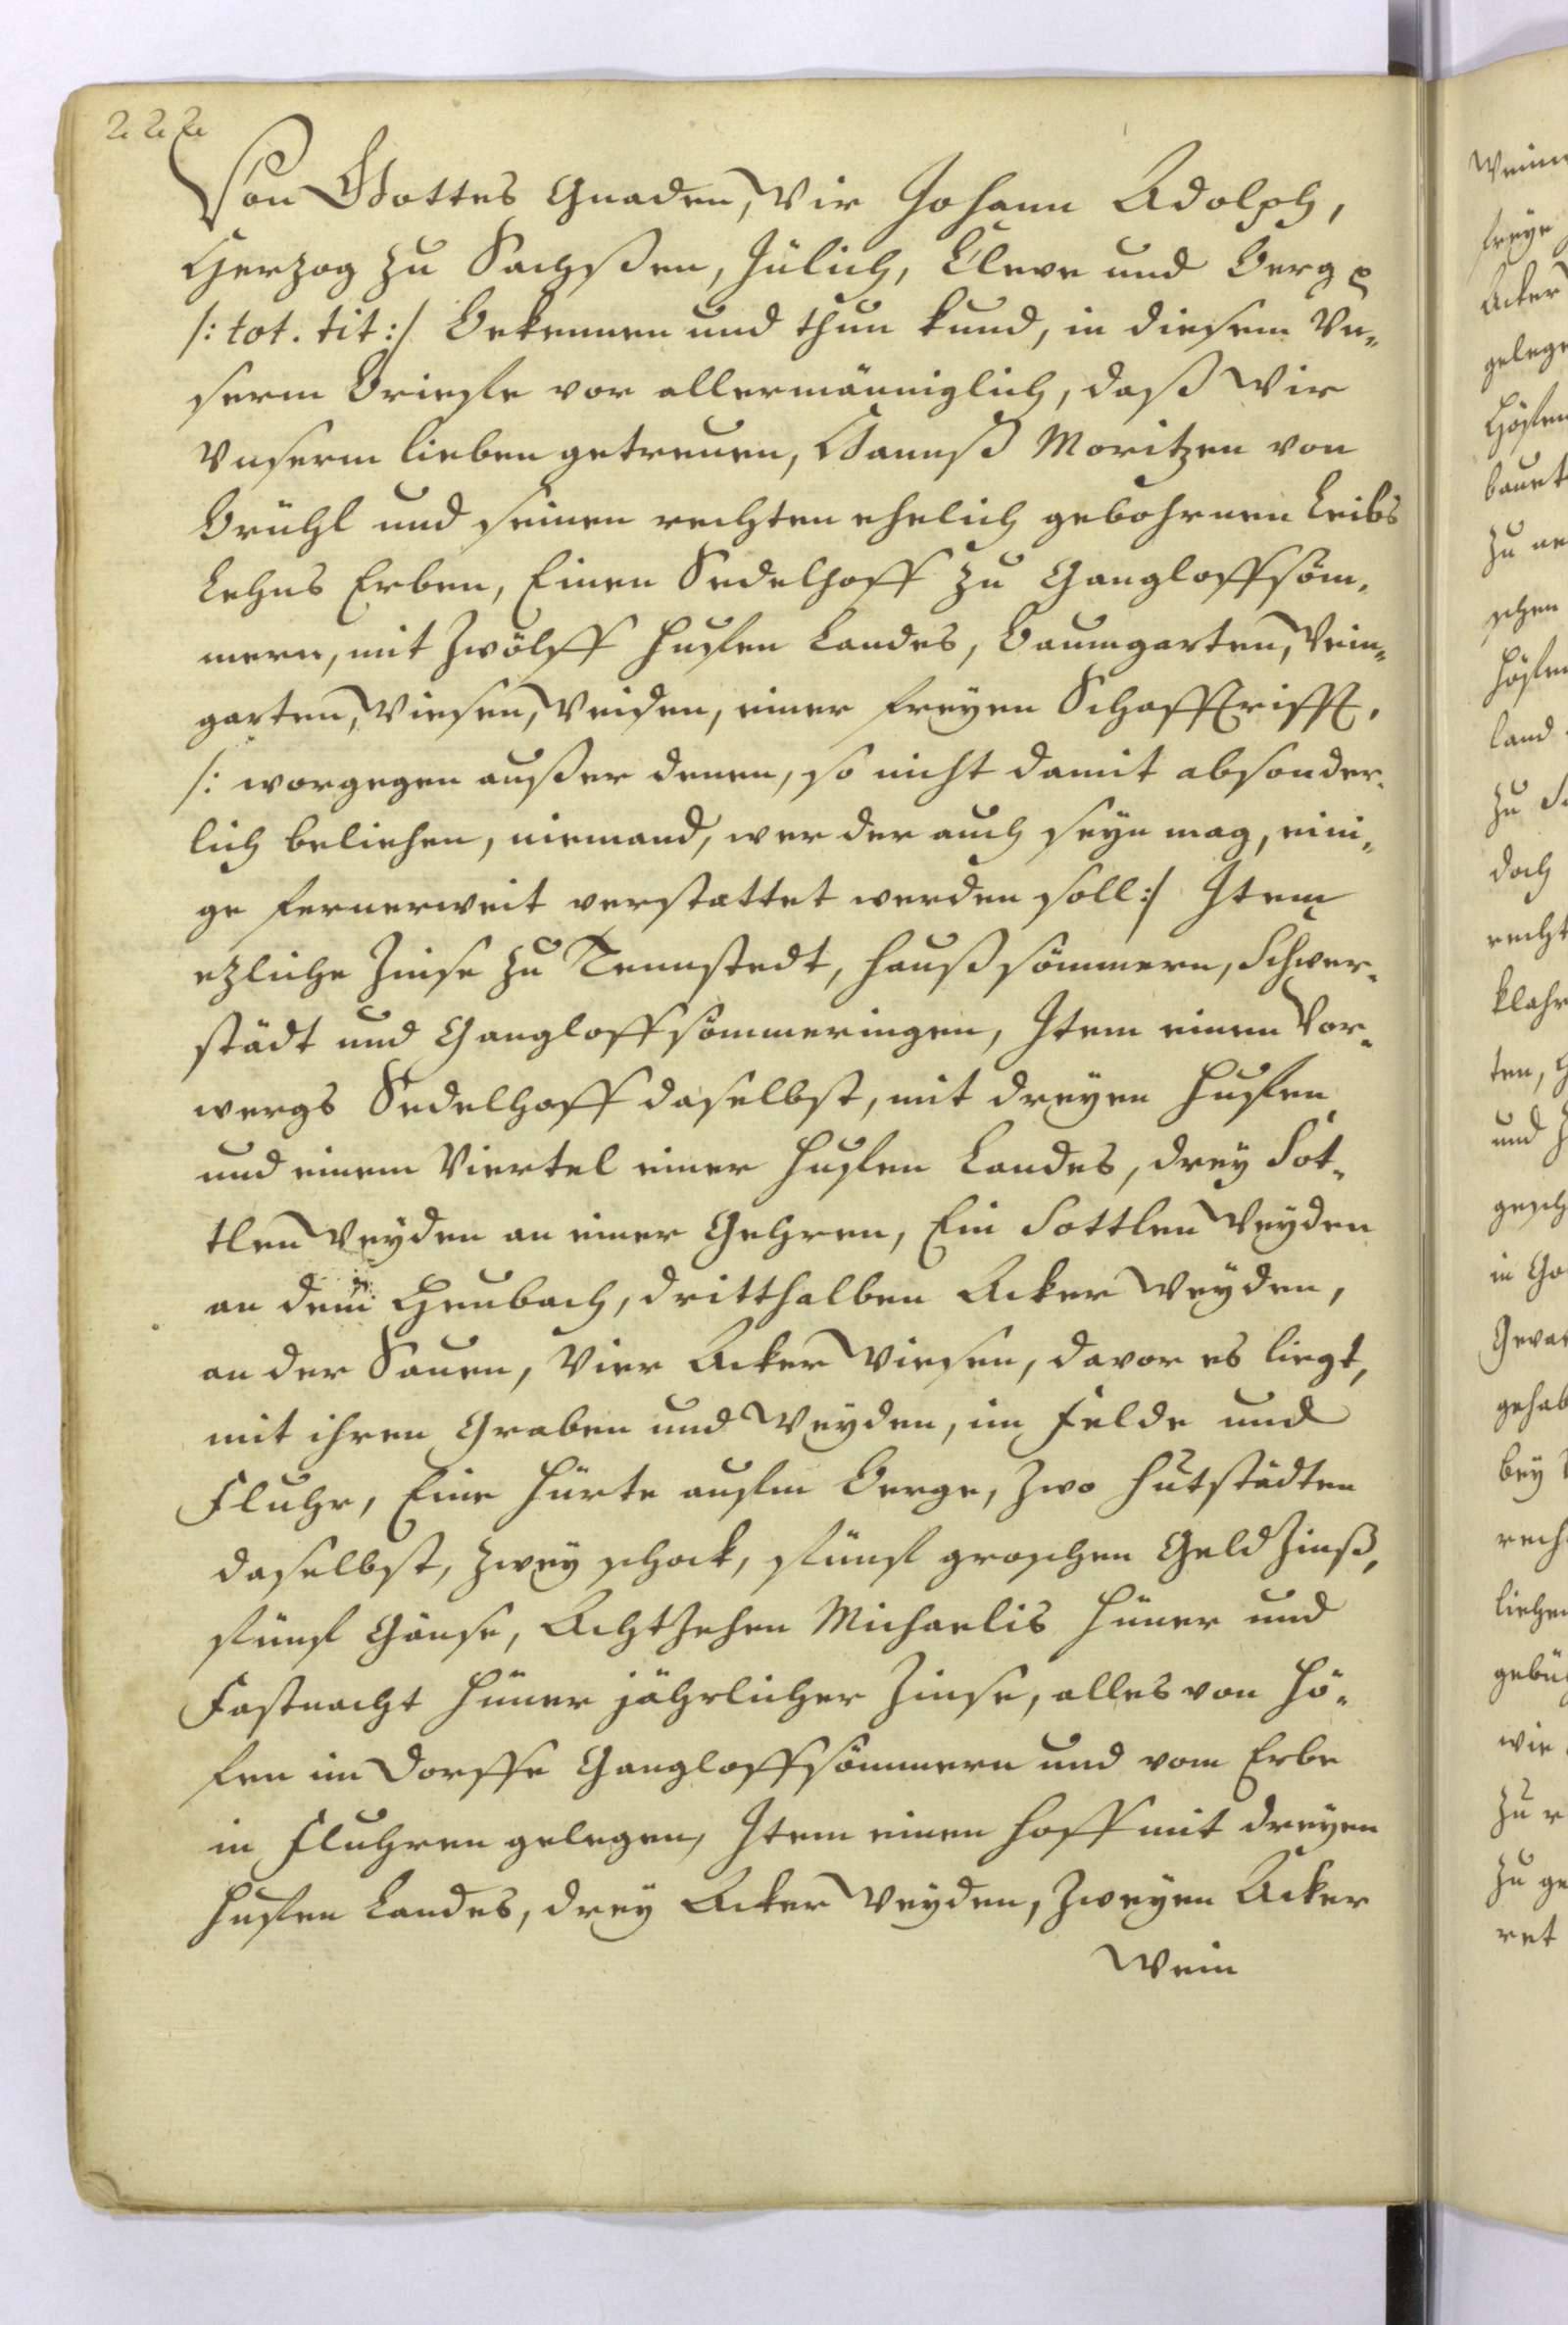 222
Von Gottes Gnaden, Wir Johann Adolph,
Herzog zu Sachßen, Jülich, Cleve und Berg
/: tot. tit :/ Bekennen und thun kund, in diesem Un-
serm Brieffe vor allermänniglich, daß Wir
Unserm lieben getreuen, Hannß Moritzen von
Brühl und seinen rechten ehelich gebohrnen Leibs
Lehns Erben, Einen Sedelhoff zu Gangloffsöm-
mern, mit Zwölff Huffen Landes, Baumgarten, Wein-
garten, Wiesen, Weiden, einer freyen Schafftrifft,
/: worgegen außer denen, so nicht damit absonder-
lich beliehen, niemand, wer der auch seyn mag, eini-
ge fernerweit verstattet werden soll :/ Item
ezliche Zinse zu Tennstedt, Haußsömmern, Schwer-
städt und Gangloffsömmeringen, Item einen Vor-
wergs Sedelhoff daselbst, mit dreyen Huffen
und einem Viertel einer Huffen Landes, drey Sot-
tlen Weyden an einer Gehren, Ein Sottlen Weyden
an dem Heubach, dritthalben Acker Weyden,
an der Sauen, Vier Acker Wiesen, davor es liegt,
mit ihren Graben und Weyden, im Felde und
Fluhr, Eine Hürte auffm Berge, Zwo Hutstädten
daselbst, Zwey schock, fünff groschen Geld Zinß,
fünff Gänse, Achtzehen Michaelis Hüner und
Fastnacht Hüner jährlicher Zinse, alles von Hö-
fen im Dorffe Gangloffsömmern und vom Erbe
in Fluhren gelegen, Item einen Hoff mit dreyen
Huffen Landes, drey Acker Weyden, Zweyen Acker
Wein